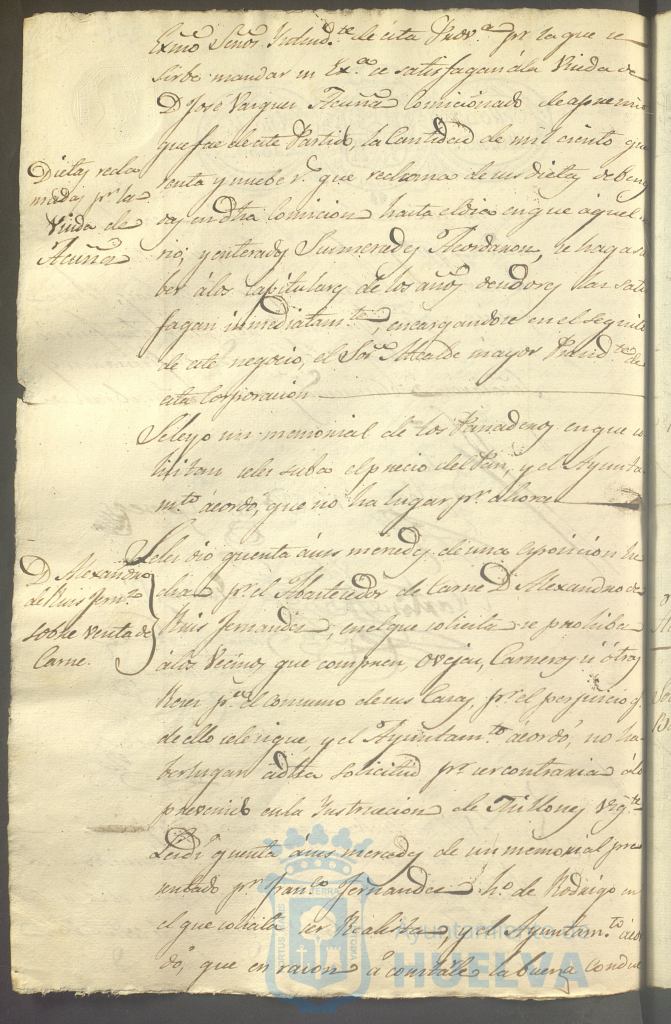 Exmo Señor Yntend.te de esta Prov.a pr la que se
sirbe mandar su Ex.a se satisfagan á la Viuda de
D José Vazquez Acuña Comicionado de apremio
que fue de este Partido, la Cantidad de mil ciento
renta y nuebe r.s que reclama de sus dietas deben
das en dha Comicion hasta el dia en que aquel
rio; y enterados Sus mercedes Acordaron, se haga sa
ber á los capitulares de los años deudores las satis
fagan inmediatam.te, encargandose en el seguito
de este negocio, el Sor. Alcalde mayor Presid.te de
esta Corporacion
Dietas recla
madas pr. la
Viuda de
Acuña
Se leyo un memorial de los Panaderos en que so
licitan se les suba el precio del Pan, y el Ayunta
m.to acordó, que no ha lugar pr. ahora
D Alexandro
de Ruis Fern.z
sobre venta de
Carne.
Se les dio quenta á sus mercedes de una esposicion he
cha pr. el Abastecedor de Carne D. Alexandro de
Ruis Fernandez, en el que solicita se prohiba
á los Vecinos que compren Ovejas, Carneros ú otras
Reses p.a el consumo de sus Casas, pr. el perjuicio q.
de ello se le sigue, y el Ayuntam.to acordó, no ha
ber lugar á dha solicitud pr. ser contraria á lo
prevenido en la Ynstruccion de Millones Vig.te
Se dio quenta á sus mercedes de un memorial pre
sentado pr. Fran.co Fernandez h.o de Rodrigo en
el que solicita ser Realista, y el Ayuntam.to acor
dó, que en razon á constale la buena conduc
Ayuntamiento de
HUELVA